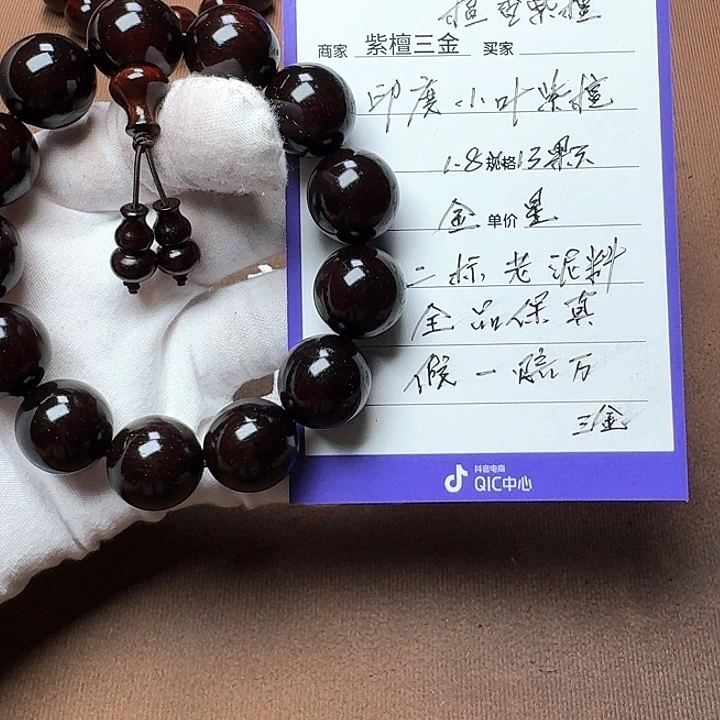 檀型紫檀
商家 紫檀三金 买家
印度小叶紫檀
1.8规格13颗
金单价星
二标老泥料
全品保真
假一赔万
三金
抖音电商
QIC中心